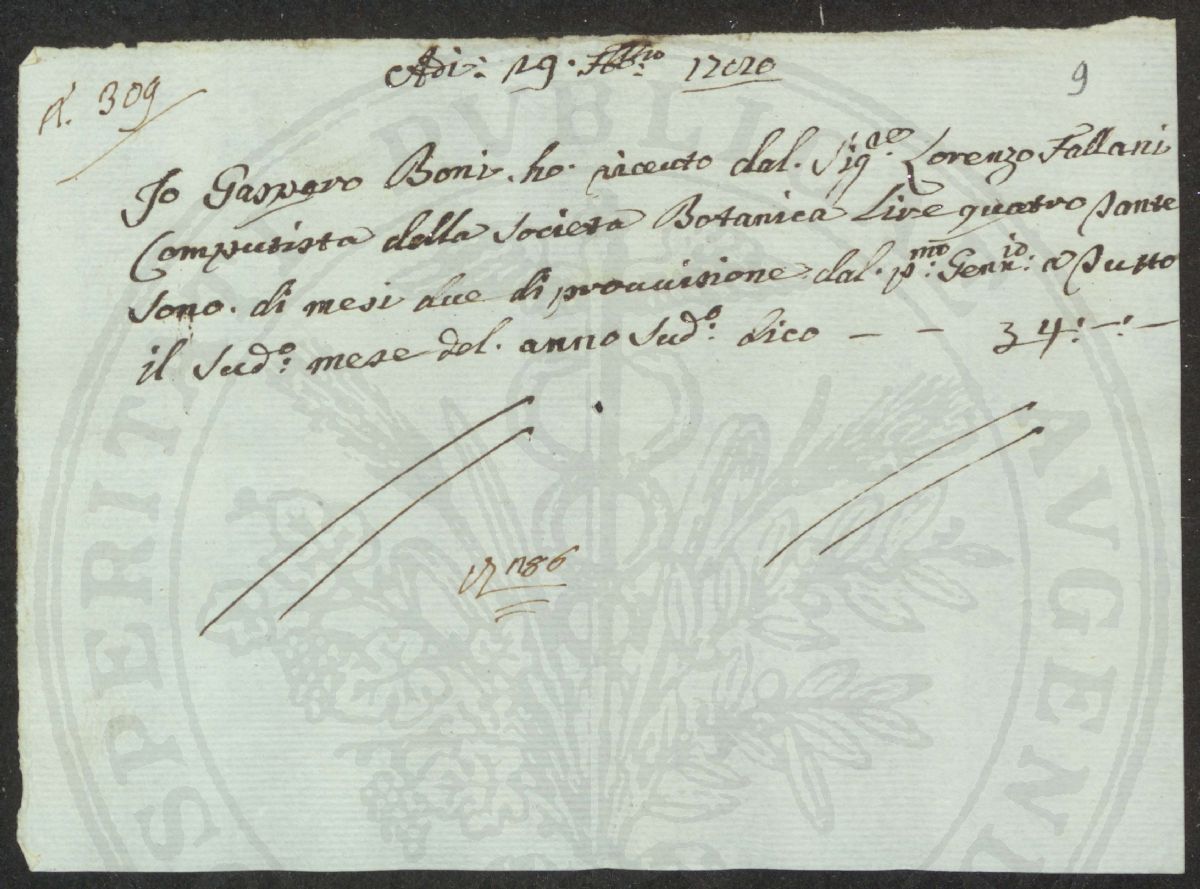 N. 309
Adì: 29. Febbro
9
Io Gasparo Boni. ho. riceuto dal. Sigre Lorenzo Fallani
Computista della Società Botanica Lire quatro Tante
Sono. di mesi due di prouuisione dal. pmo: Gennio: a Tutto
il Sudo: mese del. anno Sudo: dico — — 34:—:—
PROSPERITATI PVBLICAE AVGENDAE